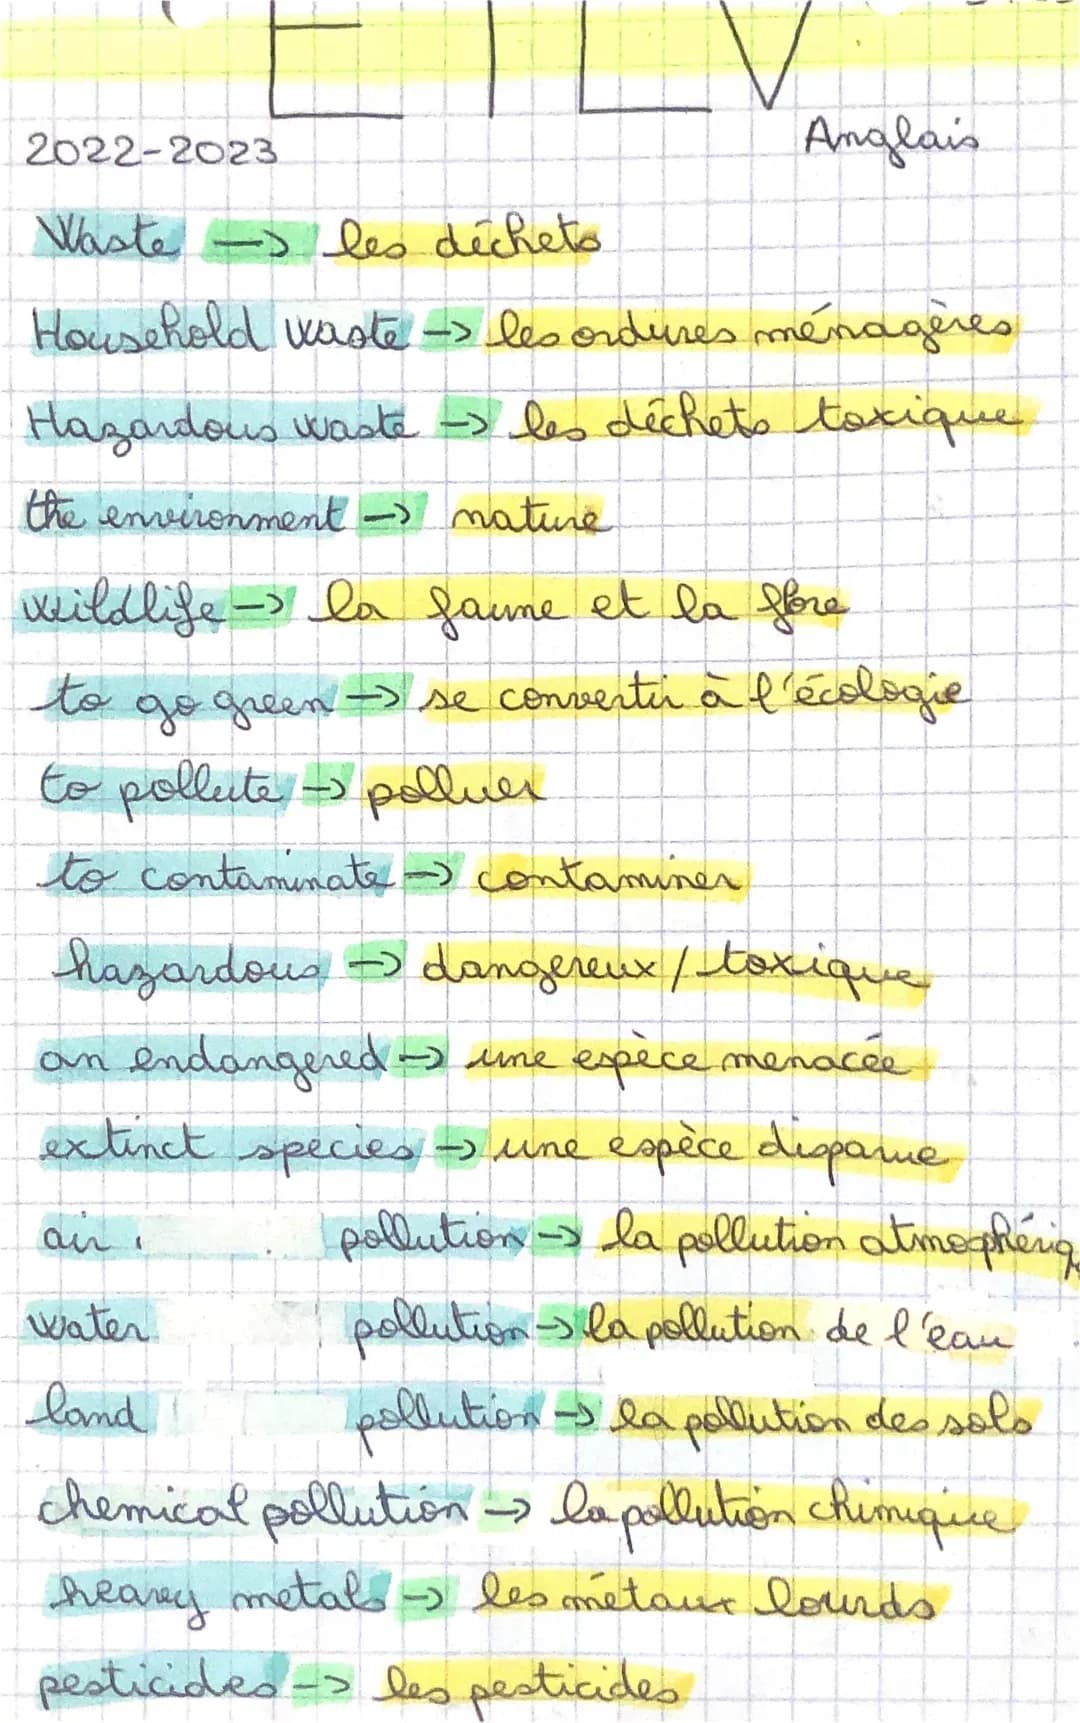 ETLV
Anglais
2022-2023
Waste -> les déchets
Household waste -> les ordures ménagères
Hazardous waste -> les déchets toxique
the environment -> nature
wildlife -> la faune et la flore
to go green -> se convertir à l'écologie
to pollute -> polluer
to contaminate -> contaminer
hazardous -> dangereux / toxique
an endangered -> une espèce menacée
extinct species -> une espèce disparue
air pollution -> la pollution atmosphériq
water pollution -> la pollution de l'eau
land pollution -> la pollution des sols
chemical pollution -> la pollution chimique
heavy metals -> les métaux lourds
pesticides -> les pesticides